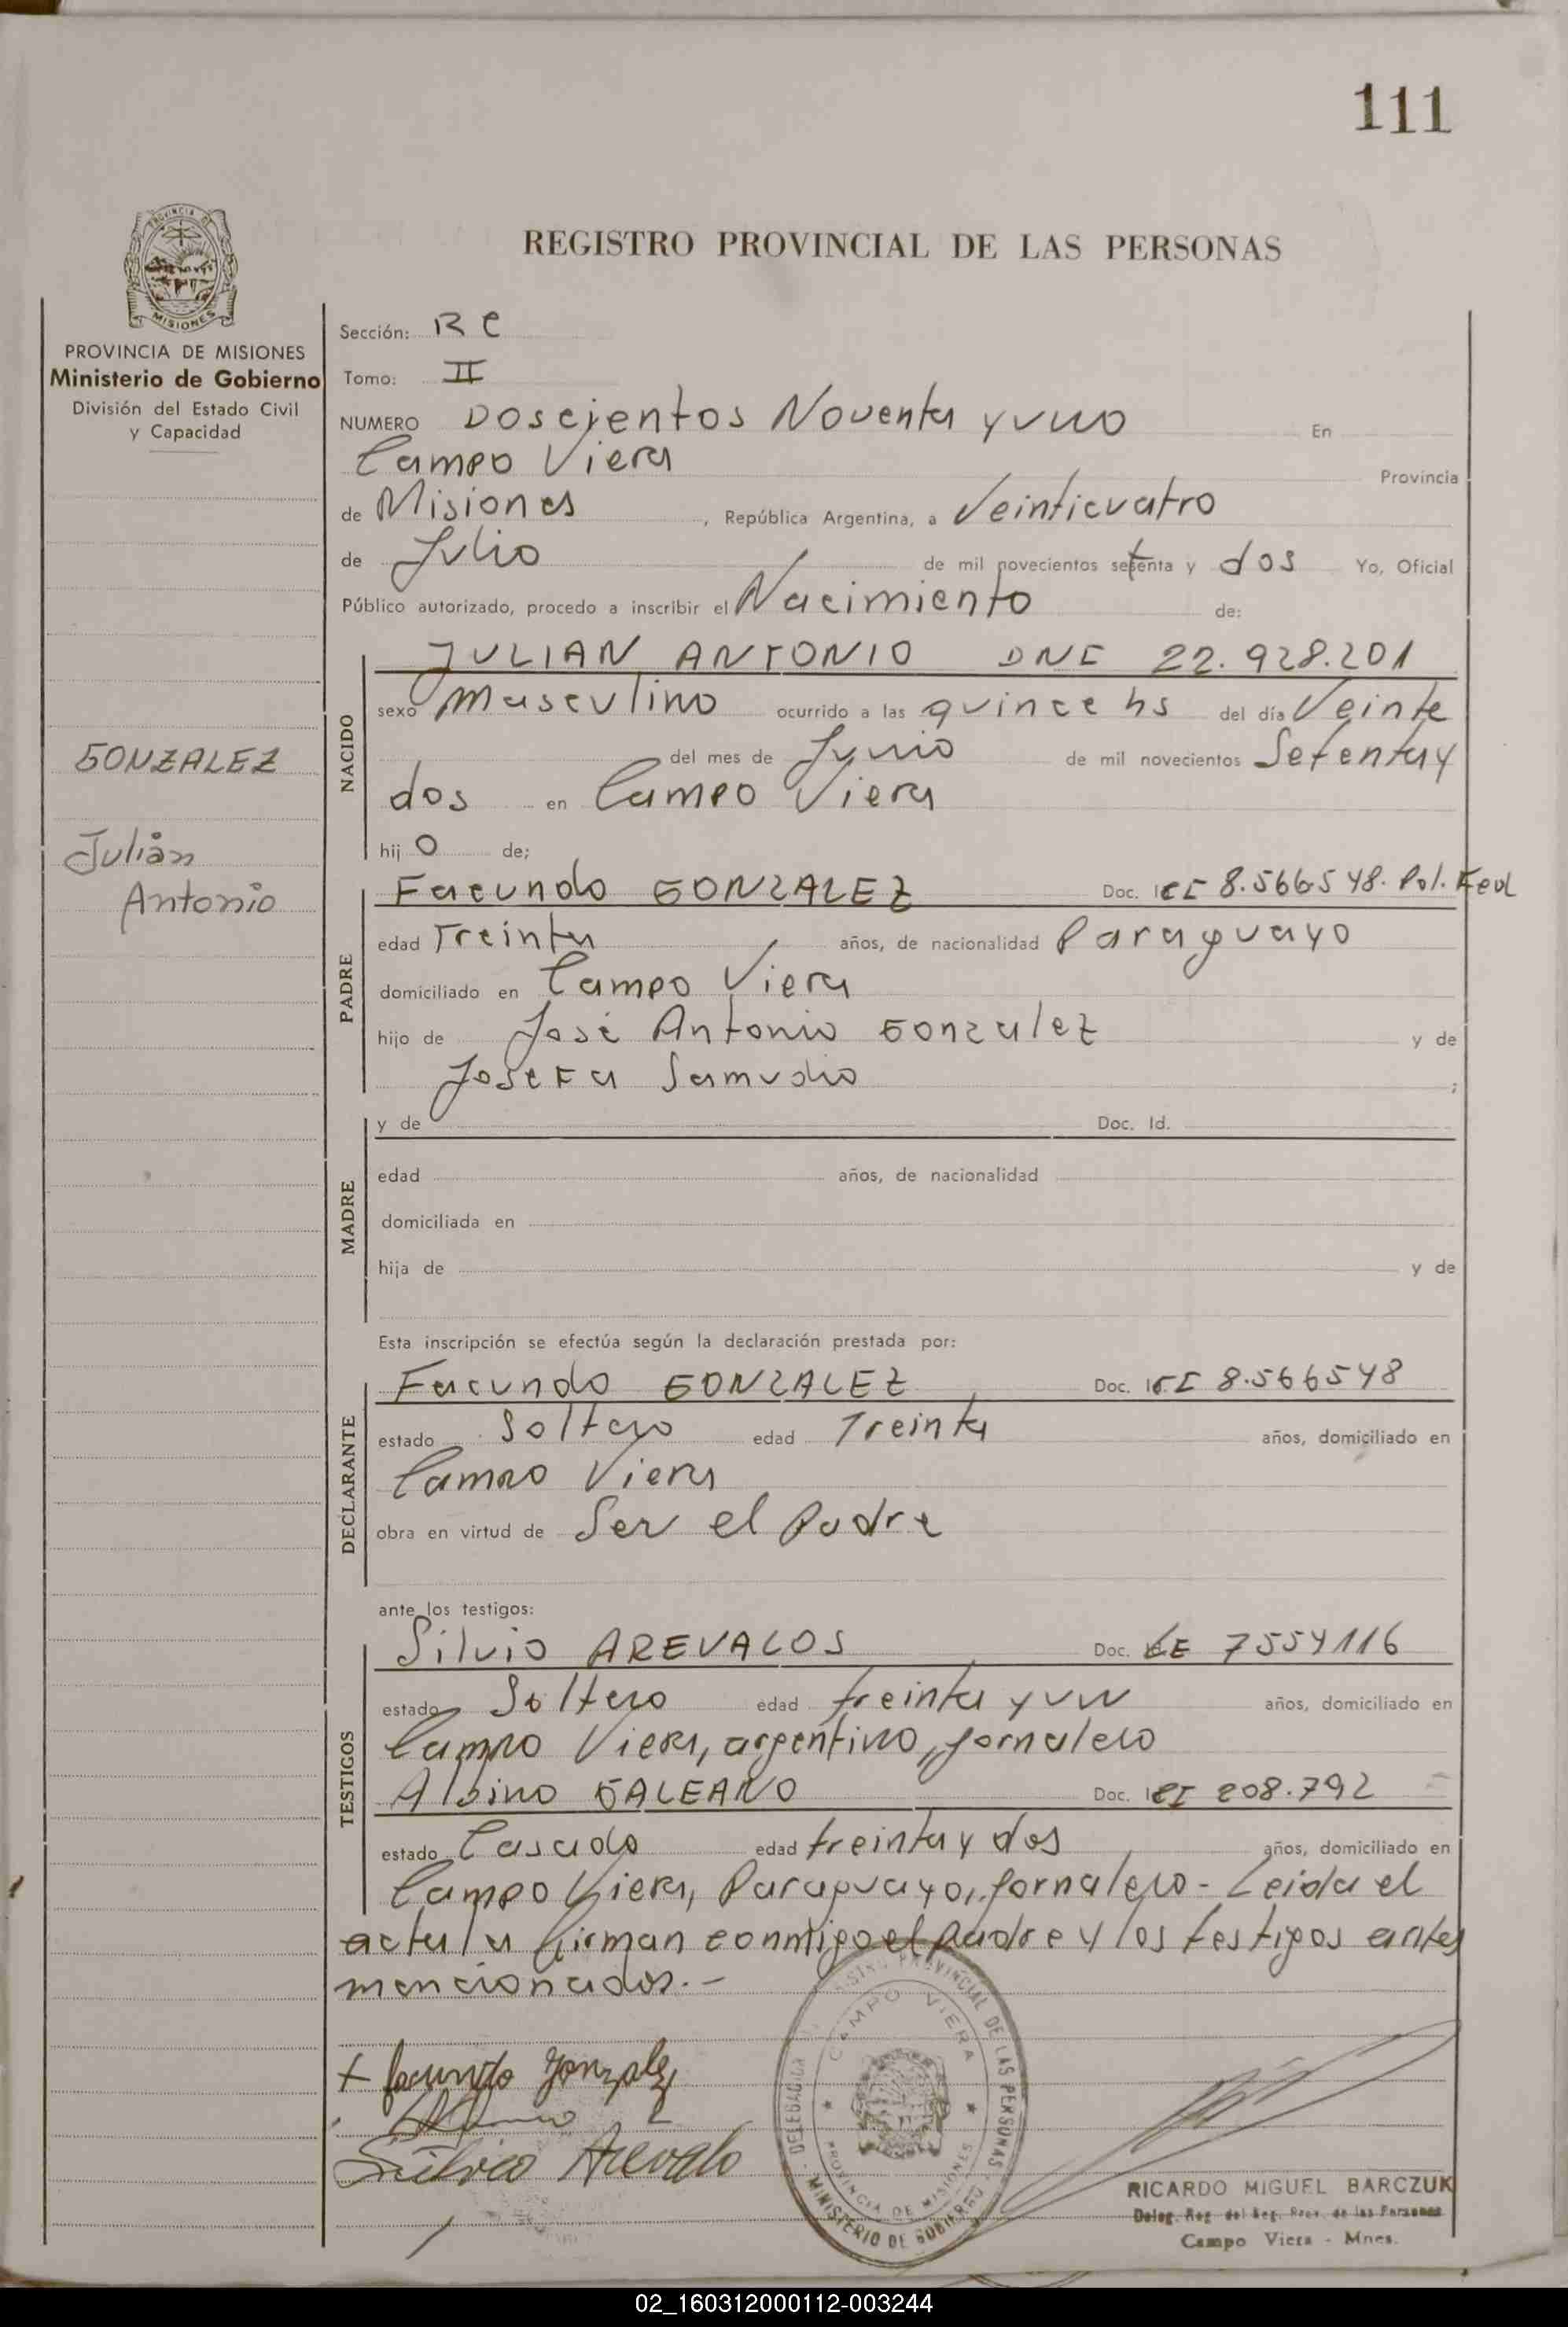 111
PROVINCIA DE
MISIONES
REGISTRO PROVINCIAL DE LAS PERSONAS
PROVINCIA DE MISIONES
Ministerio de Gobierno
División del Estado Civil
y Capacidad
GONZALEZ
Julián
Antonio
Sección: RC
Tomo: II
NUMERO Doscientos Noventa y uno En
Campo Viera Provincia
de Misiones, República Argentina, a Veinticuatro
de Julio de mil novecientos setenta y dos Yo, Oficial
Público autorizado, procedo a inscribir el Nacimiento de:
NACIDO
JULIAN ANTONIO DNI 22.928.201
sexo masculino ocurrido a las quince hs del día Veinte
del mes de Junio de mil novecientos Setenta y
dos en Campo Viera
hijo de;
PADRE
Facundo GONZALEZ Doc. CI 8.566548. Pol. Fed
edad Treinta años, de nacionalidad Paraguayo
domiciliado en Campo Viera
hijo de José Antonio Gonzalez y de
Josefa Samudio ;
MADRE
y de Doc. Id.
edad años, de nacionalidad
domiciliada en
hija de y de
Esta inscripción se efectúa según la declaración prestada por:
DECLARANTE
Facundo GONZALEZ Doc. CI 8.566548
estado Soltero edad Treinta años, domiciliado en
Campo Viera
obra en virtud de Ser el Padre
ante los testigos:
TESTIGOS
Silvio AREVALOS Doc. LE 7554116
estado Soltero edad treinta y un años, domiciliado en
Campo Viera, argentino, jornalero
Albino GALEANO Doc. CI 208.792
estado Casado edad treinta y dos años, domiciliado en
Campo Viera, Paraguayo, jornalero - Leida el
acta la firman conmigo el padre y los testigos antes
mencionados.-
+ facundo gonzalez
Silvio Arevalo
REGISTRO PROVINCIAL DE LAS PERSONAS
DELEGACION
CAMPO VIERA
PROVINCIA DE MISIONES
MINISTERIO DE GOBIERNO
RICARDO MIGUEL BARCZUK
Deleg. Reg. del Reg. Prov. de las Personas
Campo Viera - Mnes.
02_160312000112-003244